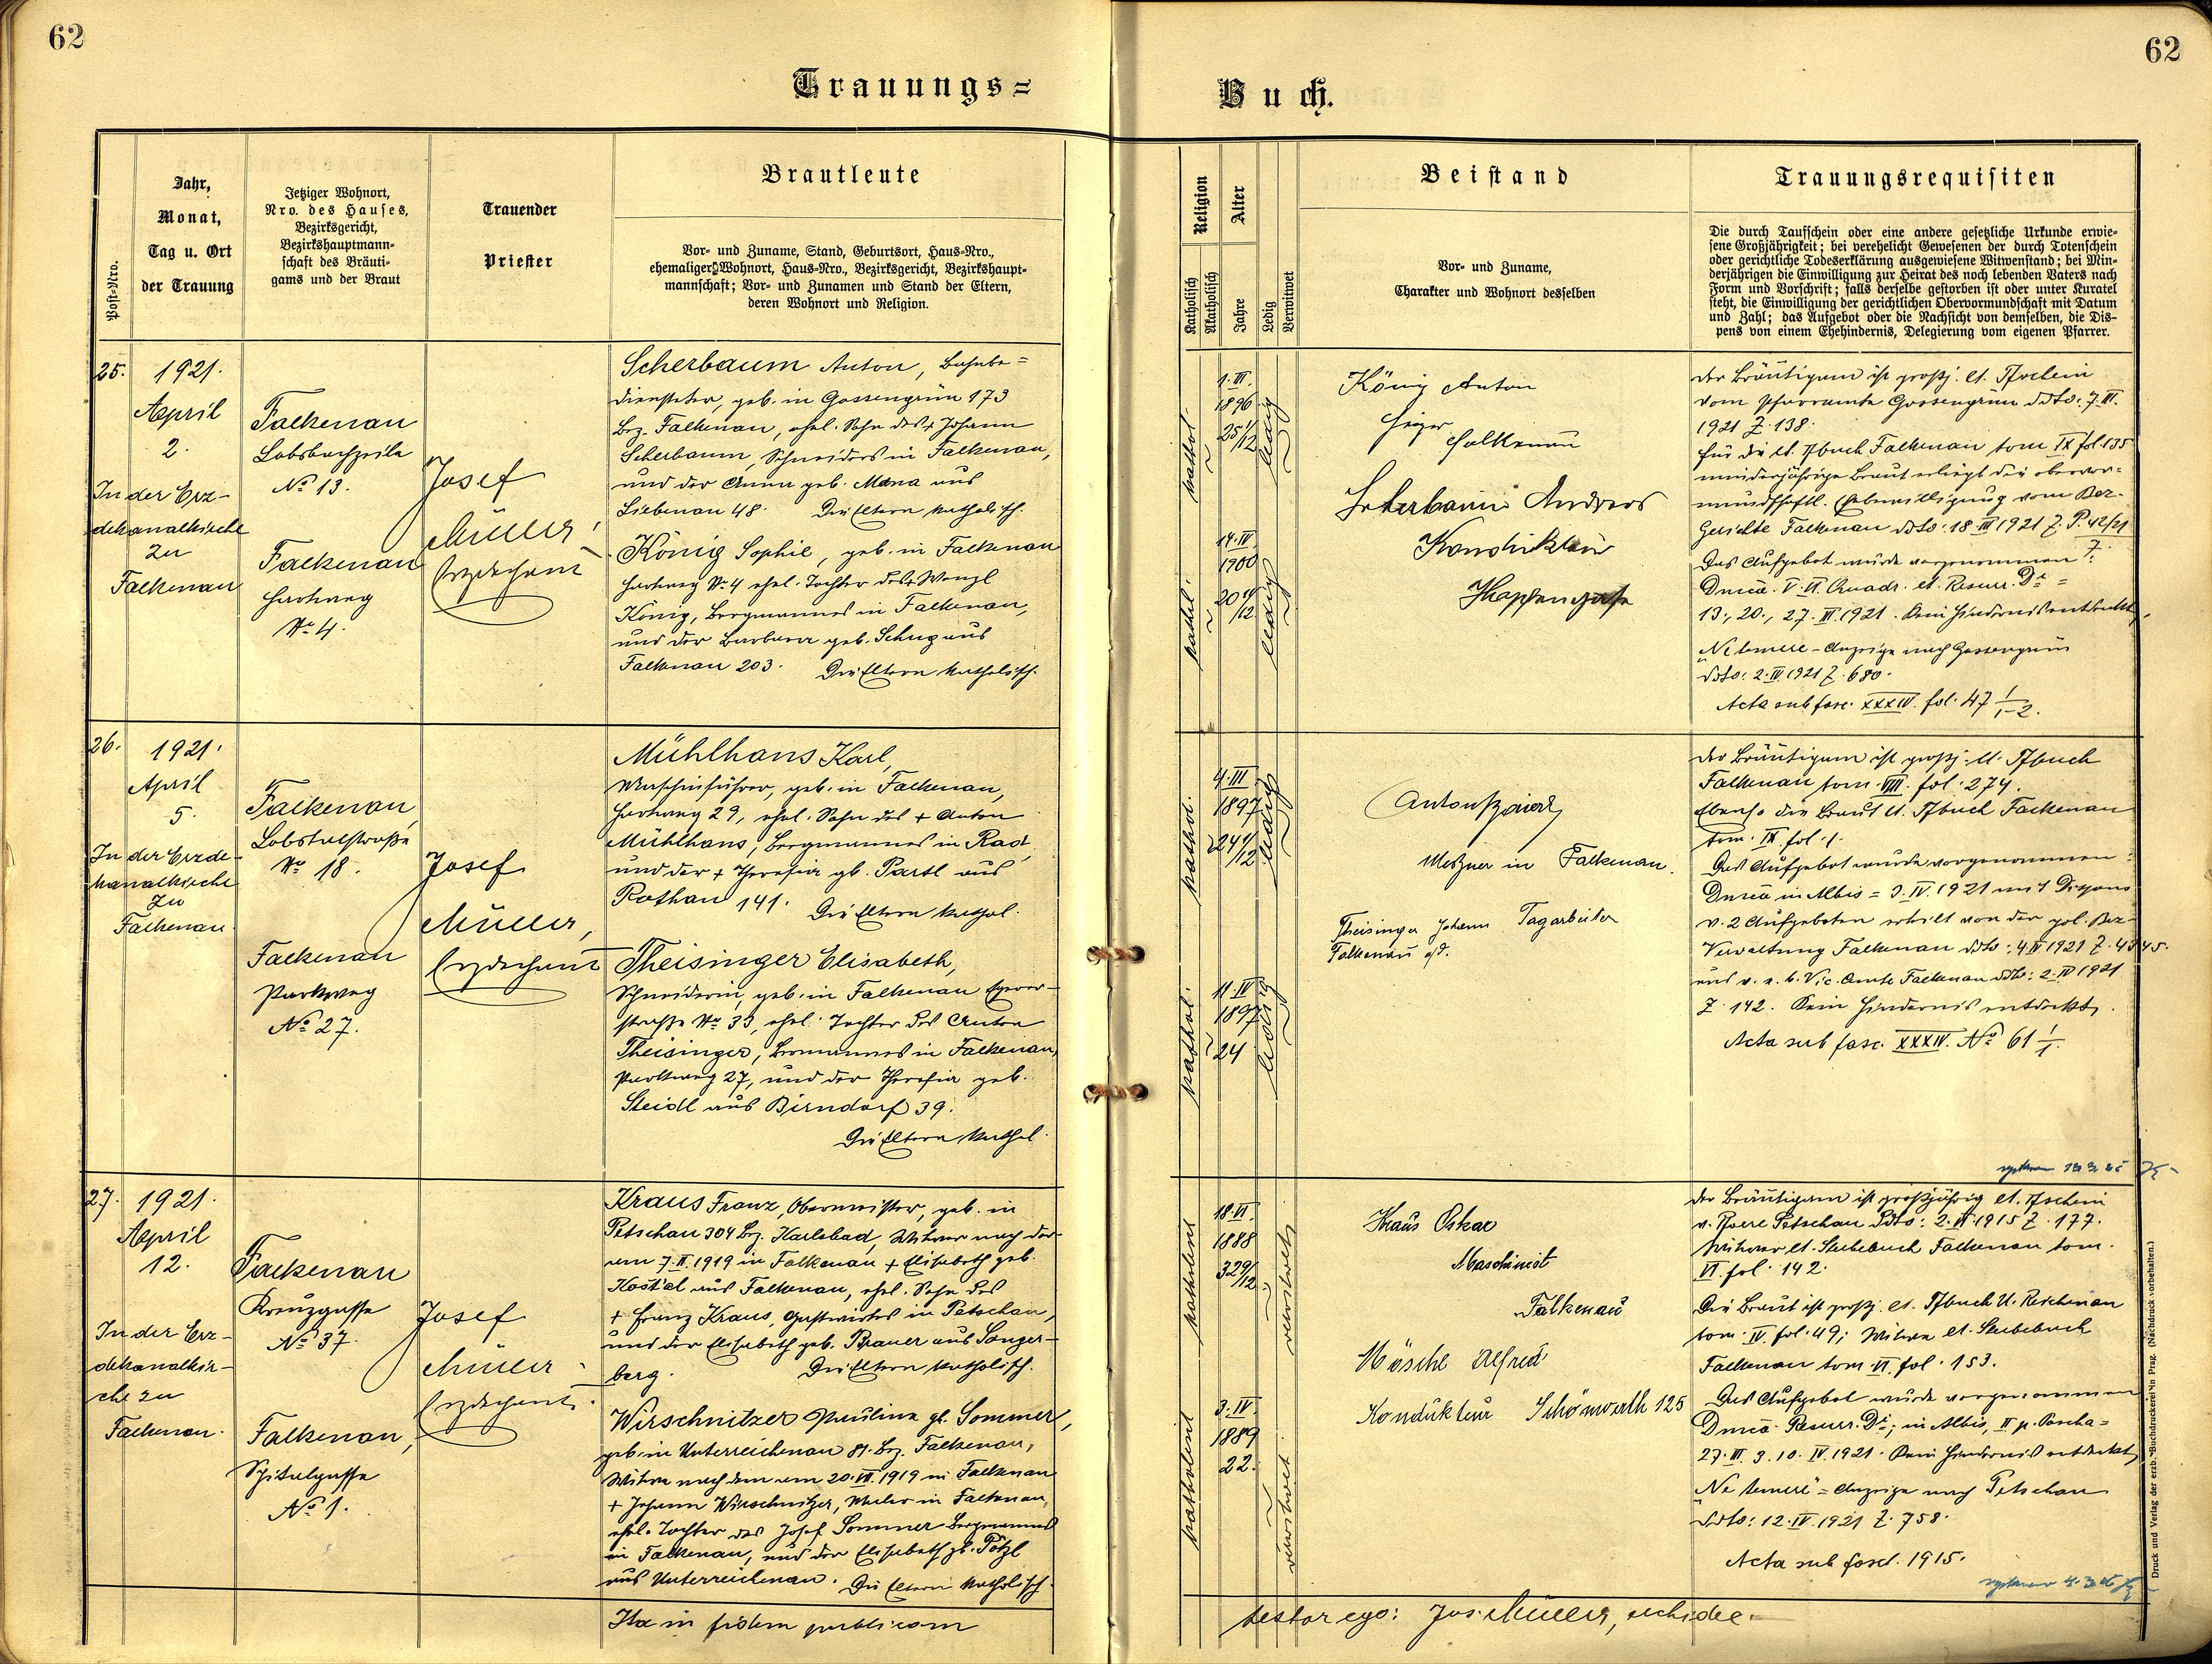 62
62
Trauungs=
Buch.
Post-Nro.
Jahr,
Monat,
Tag u. Ort
der Trauung
Jetziger Wohnort,
Nro. des Hauses,
Bezirksgericht,
Bezirkshauptmann-
schaft des Bräuti-
gams und der Braut
Trauender
Priester
Brautleute
Vor- und Zuname, Stand, Geburtsort, Haus-Nro.,
ehemaliger Wohnort, Haus-Nro., Bezirksgericht, Bezirkshaupt-
mannschaft; Vor- und Zunamen und Stand der Eltern,
deren Wohnort und Religion.
Religion
Katholisch
Akatholisch
Alter
Jahre
Ledig
Verwitwet
Beistand
Vor- und Zuname,
Charakter und Wohnort desselben
Trauungsrequisiten
Die durch Taufschein oder eine andere gesetzliche Urkunde erwie-
sene Großjährigkeit; bei verehelicht Gewesenen der durch Totenschein
oder gerichtliche Todeserklärung ausgewiesene Witwenstand; bei Min-
derjährigen die Einwilligung zur Heirat des noch lebenden Vaters nach
Form und Vorschrift; falls derselbe gestorben ist oder unter Kuratel
steht, die Einwilligung der gerichtlichen Obervormundschaft mit Datum
und Zahl; das Aufgebot oder die Nachsicht von demselben, die Dis-
pens von einem Ehehindernis, Delegierung vom eigenen Pfarrer.
25.
1921.
April
2.
In der Erz-
dekanalkirche
zu
Falkenau
Falkenau
Lobsbachzeile
No 13.
Falkenau
Hartweg
No 4.
Josef
Müller,
Erzdechant
Scherbaum Anton, Bahnbe=
diensteter, geb. in Gossengrün 173
Bez. Falkenau, ehel. Sohn des + Johann
Scherbaum, Schneiders in Falkenau,
und der Anna geb. Mana aus
Liebenau 48. Die Eltern katholisch.
König Sophie, geb. in Falkenau
Hartweg No 4 ehel. Tochter des + Wenzl
König, Bergmannes in Falkenau,
und der Barbara geb. Schug aus
Falkenau 203. Die Eltern katholisch.
kathol.
1. III.
1896
25 1/12
ledig
kathol.
14. IV.
1900
20 11/12
ledig
König Anton
Heizer
Falkenau
Scherbaum Andreas
Kondukteur
Hopfengasse
Der Bräutigam ist großj. lt. Tfschein
vom Pfarramte Gossengrün ddto: 7. III.
1921 Z. 138.
Für die lt. Tfbuch Falkenau tom IX fol. 135
minderjährige Braut erliegt die obervor-
mundschaftl. Einwilligung vom Bez.
Gerichte Falkenau ddto: 18. III 1921 Z. P. 42/21
Das Aufgebot wurde vorgenommen
Dnica. V. VI. Quadr. et. Resurr. Di =
13., 20., 27. III. 1921. Kein Hindernis entdeckt.
Ne temere - Anzeige nach Gossengrün
ddto: 2. IV. 1921 Z. 680.
Acta sub fasc. XXXIV. fol. 47
26.
1921.
April
5.
In der Erzde-
kanalkirche
zu
Falkenau
Falkenau,
Lobstalstraße
No 18.
Falkenau
Parkweg
No 27.
Josef
Müller,
Erzdechant
Mühlhans Karl,
Maschinführer, geb. in Falkenau,
Hartweg 29, ehel. Sohn des + Anton
Mühlhans, Bergmannes in Rad,
und der + Theresia gb. Partl aus
Rothau 141. Die Eltern kathol.
Theisinger Elisabeth,
Schneiderin, geb. in Falkenau Egerer-
straße No 33, ehel. Tochter des Anton
Theisinger, Bergmannes in Falkenau,
Parkweg 27, und der Theresia geb.
Steidl aus Birndorf 39.
Die Eltern kathol.
kathol.
4. III
1897
24 1/12
ledig
kathol.
11. IV
1897
24
ledig
Meßner in Falkenau.
Theisinger Johann Tagarbeiter
Falkenau a/d.
Der Bräutigam ist großj. lt. Tfbuch
Falkenau tom. VIII. fol. 274.
Ebenso die Braut lt. Tfbuch Falkenau
tom. IX fol. 1.
Das Aufgebot wurde vorgenommen:
Dnica in Albis = 3. IV. 1921 mit Dispens
v. 2 Aufgeboten erteilt von der pol. Bez.
Verwaltung Falkenau ddto: 4. IV 1921 Z. 4345.
und v. e. b. Vic. Amte Falkenau ddto: 2. IV 1921
Z. 142. Kein Hindernis entdeckt.
Acta sub fasc. XXXIV. No 61
27.
1921.
April
12.
In der Erz-
dekanalkir-
che zu
Falkenau.
Falkenau
Kreuzgasse
No 37.
Falkenau,
Spitalgasse
No 1.
Josef
Müller
Erzdechant.
Kraus Franz, Obermeister, geb. in
Petschau 304 Bez. Karlsbad, Witwer nach der
am 7. II. 1919 in Falkenau + Elisabeth geb.
Kostal aus Falkenau, ehel. Sohn des
+ Franz Kraus, Gastwirtes in Petschau,
und der Elisabeth geb. Brauer aus Sanger-
berg. Die Eltern katholisch.
Wirschnitzer Paulina gb. Sommer,
geb. in Unterreichenau 81. Bez. Falkenau,
Witwe nach dem am 20. VII. 1919 in Falkenau
+ Johann Wirschnitzer, Maler in Falkenau,
ehel. Tochter des Josef Sommer Bergmannes
in Falkenau, und der Elisabeth gb. Pötzl
aus Unterreichenau. Die Eltern katholisch.
katholisch
18. VI.
1888
32 9/12
verwitwet
katholisch
3. IV.
1889
22.
verwitwet
Kraus Oskar
Maschinist
Falkenau
Möschl Alfred
Kondukteur Schönwerth 125
Der Bräutigam ist großjährig lt. Tfschein
v. Pfarre Petschau ddto: 2. VI 1915 Z. 177.
Witwer lt. Sterbebuch Falkenau tom.
VI. fol. 142.
Die Braut ist großj. lt. Tfbuch U. Reichenau
tom. IV. fol. 49; Witwe lt. Sterbebuch
Falkenau tom. VI. fol. 153.
Das Aufgebot wurde vorgenommen
Dnica Resurr. Di; in Albis, II p. Pascha =
27. III. 3. 10. IV. 1921. Kein Hindernis entdeckt.
Ne temere = Anzeige nach Petschau
ddto: 12. IV. 1921 Z. 758.
Acta sub fascl. 1915.
Ita in fidem publicam
testor ego: Jos. Müller, archidec.
Druck und Verlag der erzb. Buchdruckerei in Prag. (Nachdruck vorbehalten.)